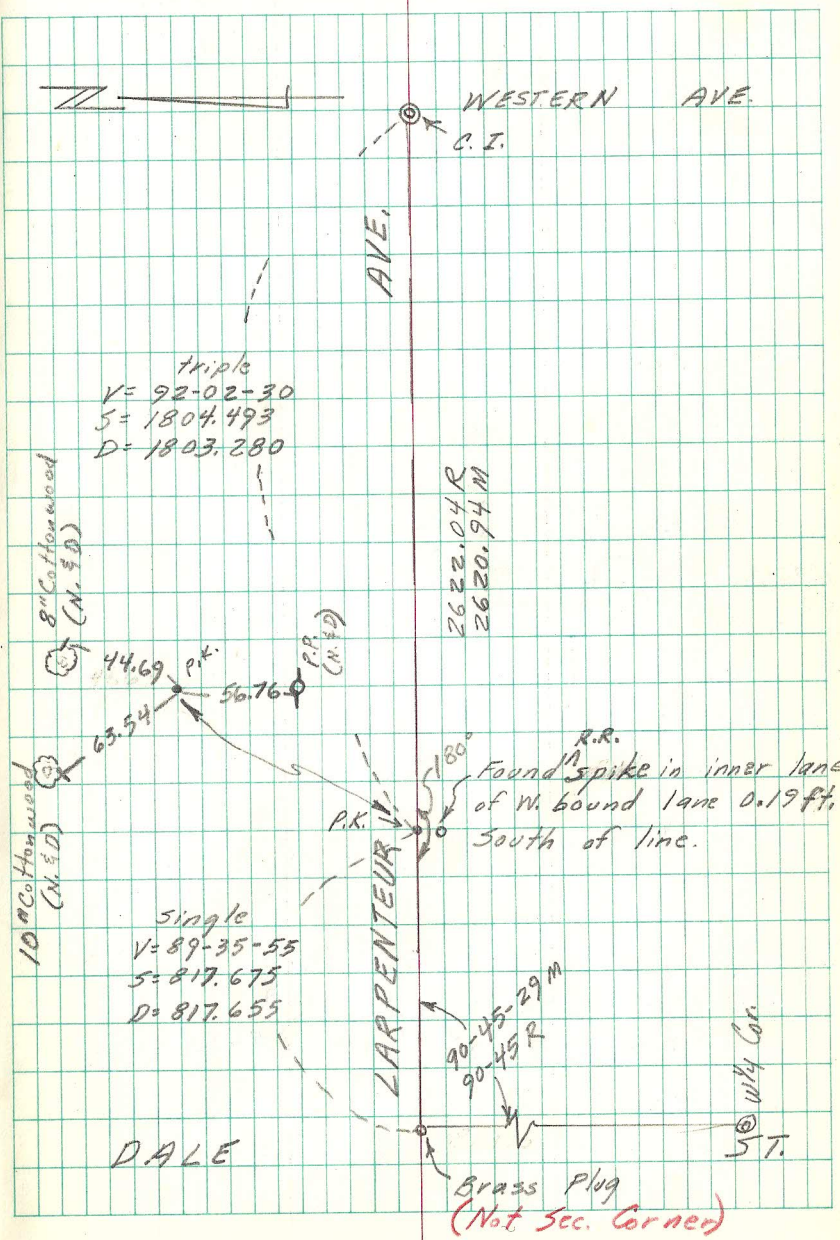 N
WESTERN AVE.
C. I.
AVE.
triple
V= 92-02-30
S= 1804.493
D= 1803.280
2622.04 R
2620.94 M
8" Cottonwood
(N. & D)
44.69
P.K.
56.76
P.P.
(N. & D)
63.54
10" Cottonwood
(N. & D)
180°
R.R.
Found ^ Spike in inner lane
of W. bound lane 0.19 ft.
South of line.
P.K.
LARPENTEUR
single
V= 89-35-55
S= 817.675
D= 817.655
90-45-29 M
90-45 R
W 1/4 Cor.
DALE
ST.
Brass Plug
(Not Sec. Corner)